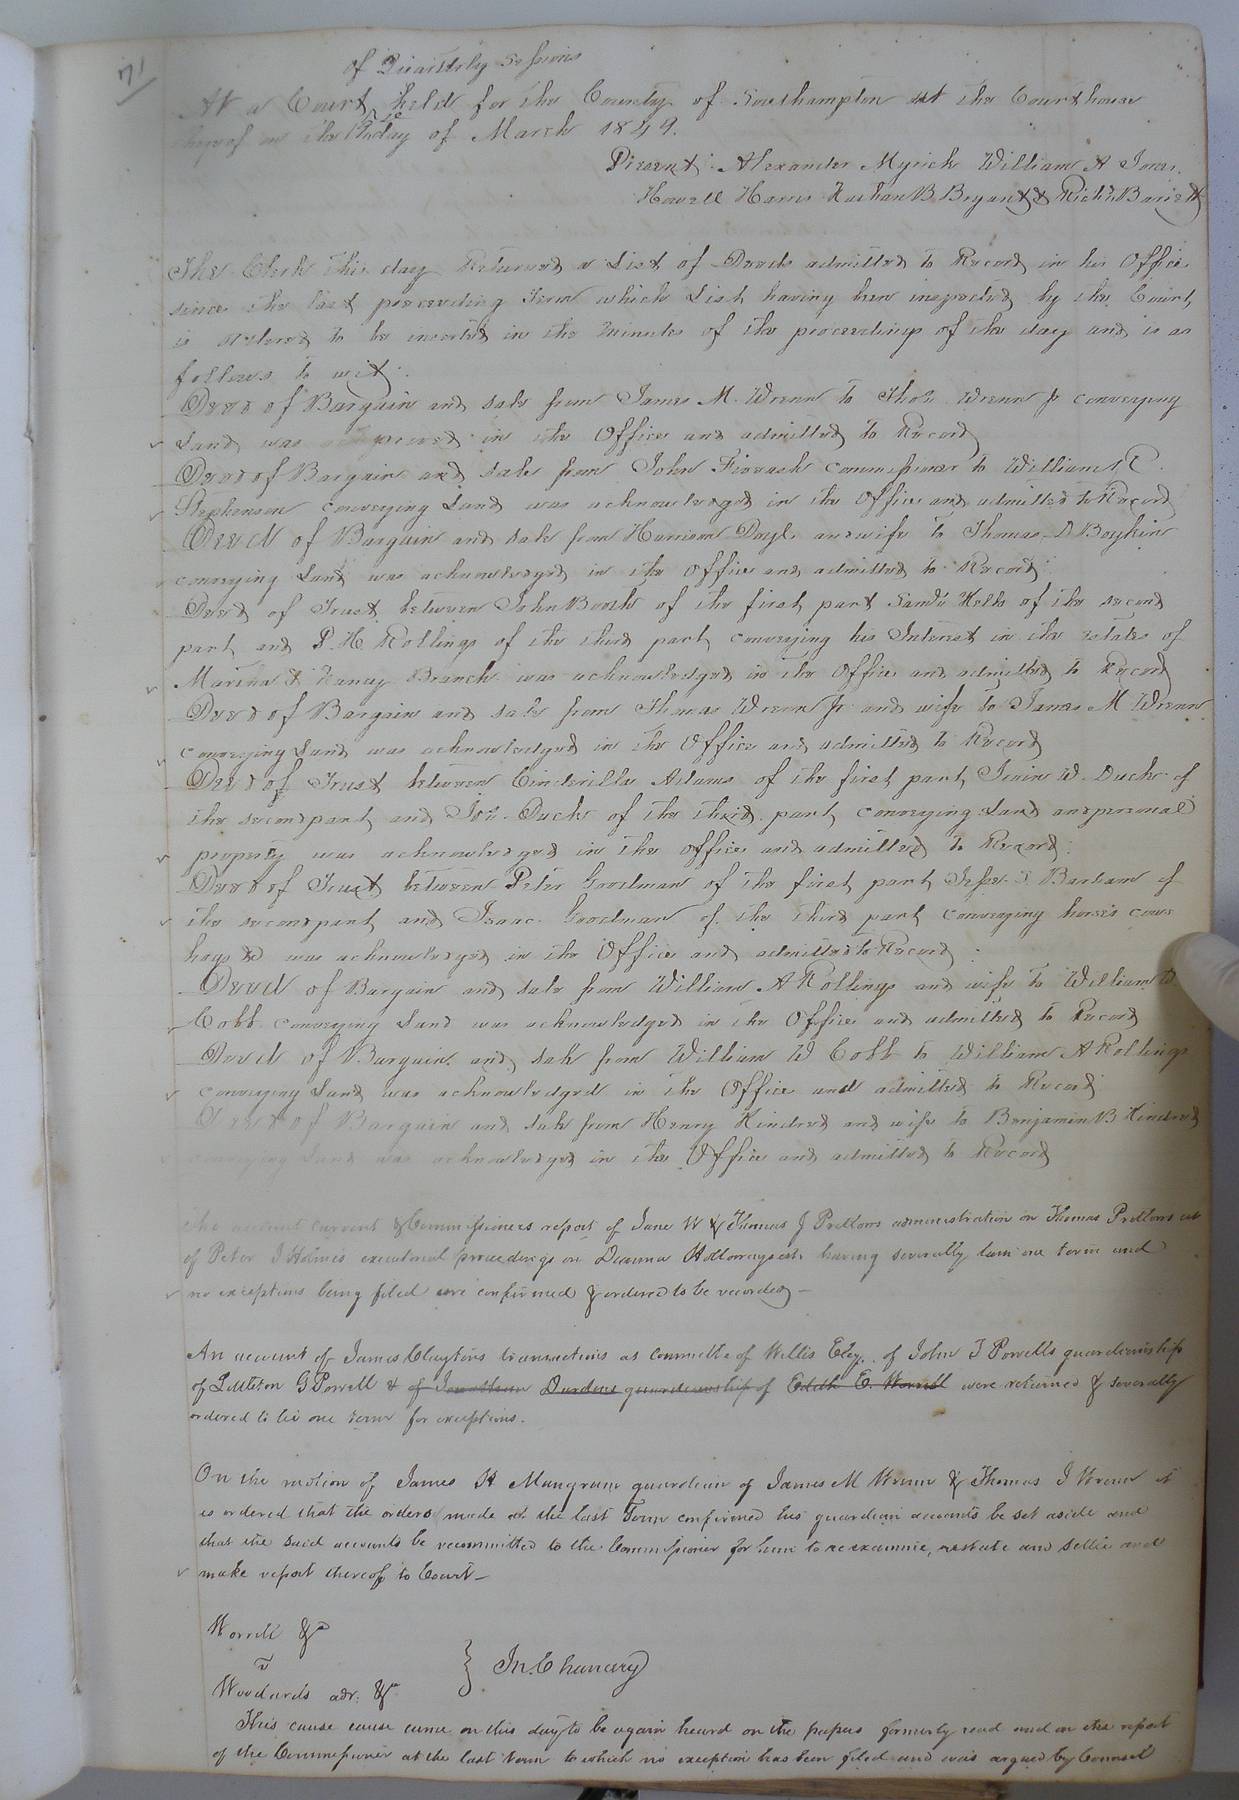 71
of Quarterly Sessions
At a Court held for the County of Southampton at the Courthouse
thereof on the day of March 1849.
Present: Alexander Myrick William A Jones.
Howell Harris Nathan B Bryant & Richd Barrett
The Clerk this day Returned a List of Deeds admitted to Record in his Office
since the last preceeding Term which List having been inspected by the Court
is ordered to be inserted in the Minutes of the proceedings of the day and is as
follows to wit:
Deed of Bargain and sale from James M. Wrenn to Thos. Wrenn Jr conveying
Land was proved in the Office and admitted to Record
Deed of Bargain and sale from John commissioner to William
Stephenson conveying Land was acknowledged in the Office and admitted to Record
Deed of Bargain and sale from Harrison Doyle and wife to Thomas D Boykin
conveying Land was acknowledged in the Office and admitted to Record
Deed of Trust between John Booth of the first part of the second
part and P. H. Rollings of the third part conveying his Interest in the estates of
Martha & Nancy Branch was acknowledged in the Office and admitted to Record
Deed of Bargain and sale from Thomas Wrenn Jr and wife to James M Wrenn
conveying Land was acknowledged in the Office and admitted to Record
Deed of Trust between Cinderilla Adams of the first part, W. Duck of
the second part and Jos. Duck of the third part conveying Land and personal
property was acknowledged in the Office and admitted to Record:
Deed of Trust between Peter Goodman of the first part Barham of
the second part and Isaac Goodman of the third part conveying horses cows
hogs &c was acknowledged in the Office and admitted to Record
Deed of Bargain and sale from William A Rollings and wife to William W
Cobb conveying Land was acknowledged in the Office and admitted to Record
Deed of Bargain and sale from William W Cobb to William A Rollings
conveying Land was acknowledged in the Office and admitted to Record
Deed of Bargain and sale from Henry Kindred and wife to Benjamin B Kindred
conveying Land was acknowledged in the Office and admitted to Record
The account current & Commissioners report of Jane W & Thomas J Pretlows administration on Thomas Pretlows est
of Peter J Holmes executorial proceedings on Holloways est having severally lain one term and
no exceptions being filed were confirmed & ordered to be recorded —
An account of James Claytons transactions as Committee of Willis Eley, of John T Powells guardianship
of Littleton G Powell & of Jonathan Dardens guardianship of Edith E. Worrell were returned & severally
ordered to lie one term for exceptions.
On the motion of James H Mangram guardian of James M Wrenn & Thomas J Wrenn it
is ordered that the orders made at the last Term confirmed his guardian accounts be set aside and
that the said accounts be recommitted to the Commissioner for him to reexamine, restate and settle and
make report thereof to Court —
Worrell &c
v
Woodards adr. &c
} In Chancery
This cause cause came on this day to be again heard on the papers formerly read and on the report
of the Commissioner at the last term to which no exception has been filed and was argued by Counsel